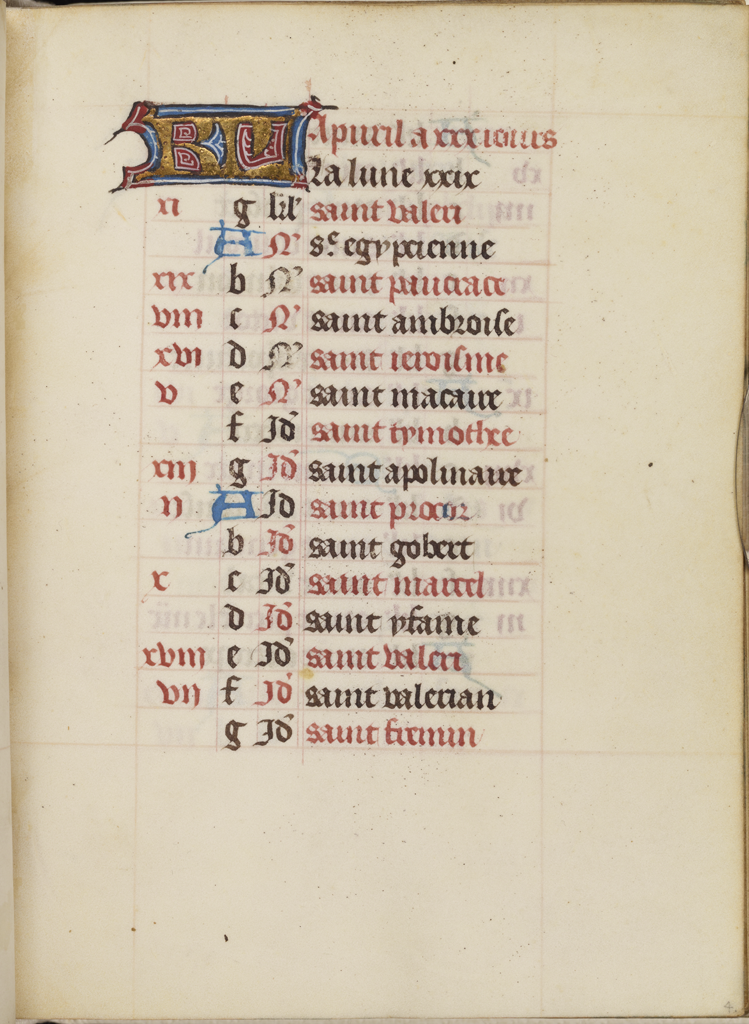 KL Apuril a xxx iours
La lune xxix
xi g kl' saint valeri
A N' sᵉ egypcienne
xix b N' saint pancrace
viii c N' saint ambroise
xvi d N' saint ieroisme
v e N' saint macaire
f Id' saint tymothee
xiii g Id' saint apolinaire
ii A Id saint procor
b Id' saint gobert
x c Id' saint marcel
d Id' saint
xviii e Id' saint valeri
vii f Id' saint valerian
g Id' saint firmin
4